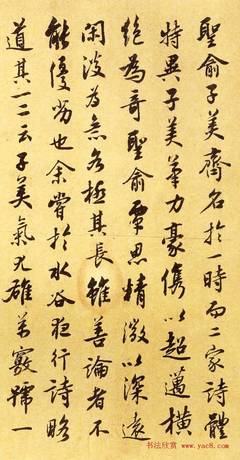 聖俞子美齊名於一時而二家詩體
特異子美筆力豪儁以超邁橫
絕為奇聖俞覃思精微以深遠
閑淡為意各極其長雖善論者不
能優劣也余嘗於水谷夜行詩略
道其一二云子美氣尤雄萬竅號一
书法欣赏www.yac8.com